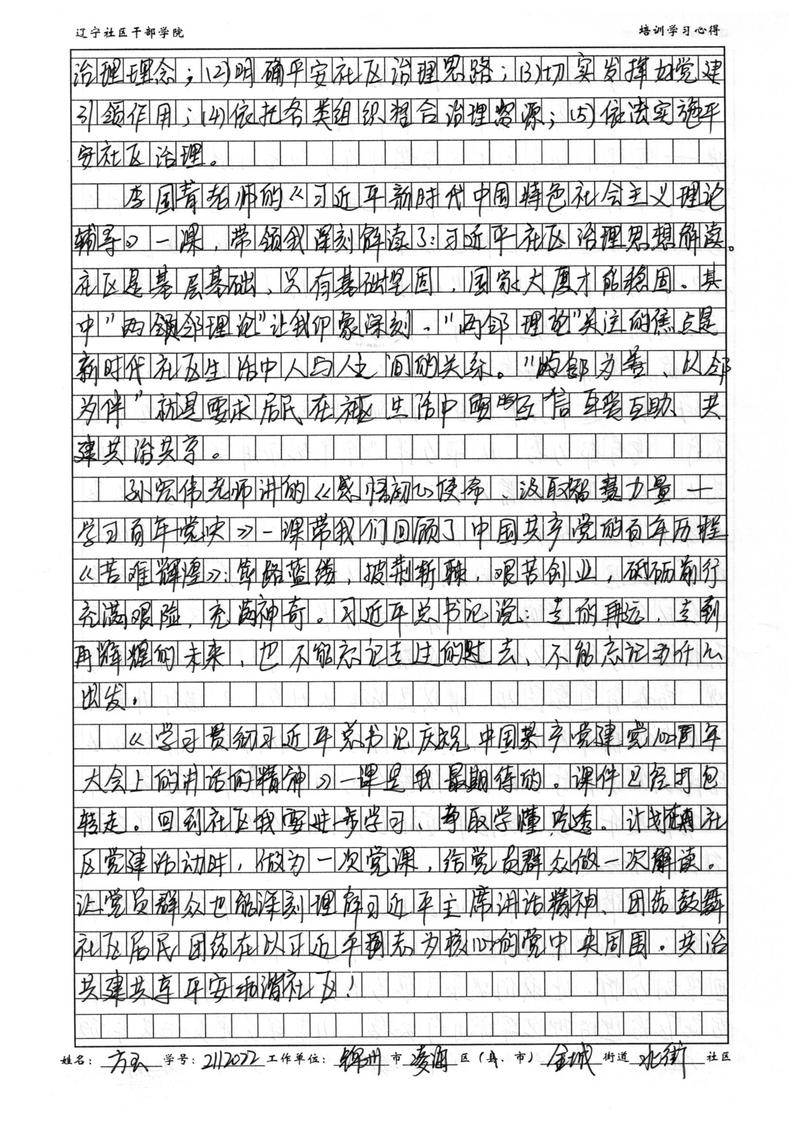 辽宁社区干部学院 培训学习心得
治理理念；(2)明确平安社区治理思路；(3)切实发挥好党建
引领作用；(4)依托各类组织整合治理资源；(5)依法实施平
安社区治理。
李国青老师的《习近平新时代中国特色社会主义理论
辅导》一课，带领我深刻解读了：习近平社区治理思想解读。
社区是基层基础，只有基础坚固，国家大厦才能稳固。其
中“两领邻理论”让我印象深刻，“两邻理论”关注的焦点是
新时代社区生活中人与人之间的关系。“与邻为善、以邻
为伴”就是要求居民在社区生活中互信互爱互助、共
建共治共享。
孙宏伟老师讲的《感悟初心使命、汲取智慧力量一
学习百年党史》一课带我们回顾了中国共产党的百年历程
《苦难辉煌》：筚路蓝缕，披荆斩棘，艰苦创业，砥砺前行
充满艰险，充满神奇。习近平总书记说：走的再远，走到
再辉煌的未来，也不能忘记走过的过去、不能忘记为什么
出发。
《学习贯彻习近平总书记庆祝中国共产党建党100周年
大会上的讲话的精神》一课是我最期待的。课件已经打包
转走。回到社区我要进步学习、争取学懂吃透。计划在社
区党建活动时，做为一次党课，给党员群众做一次解读。
让党员群众也能深刻理解习近平主席讲话精神、团结鼓舞
社区居民团结在以习近平同志为核心的党中央周围。共治
共建共享平安和谐社区！
姓名：方玉 学号：2112022 工作单位：锦州 市 凌海 区（县、市） 金城 街道 北街 社区